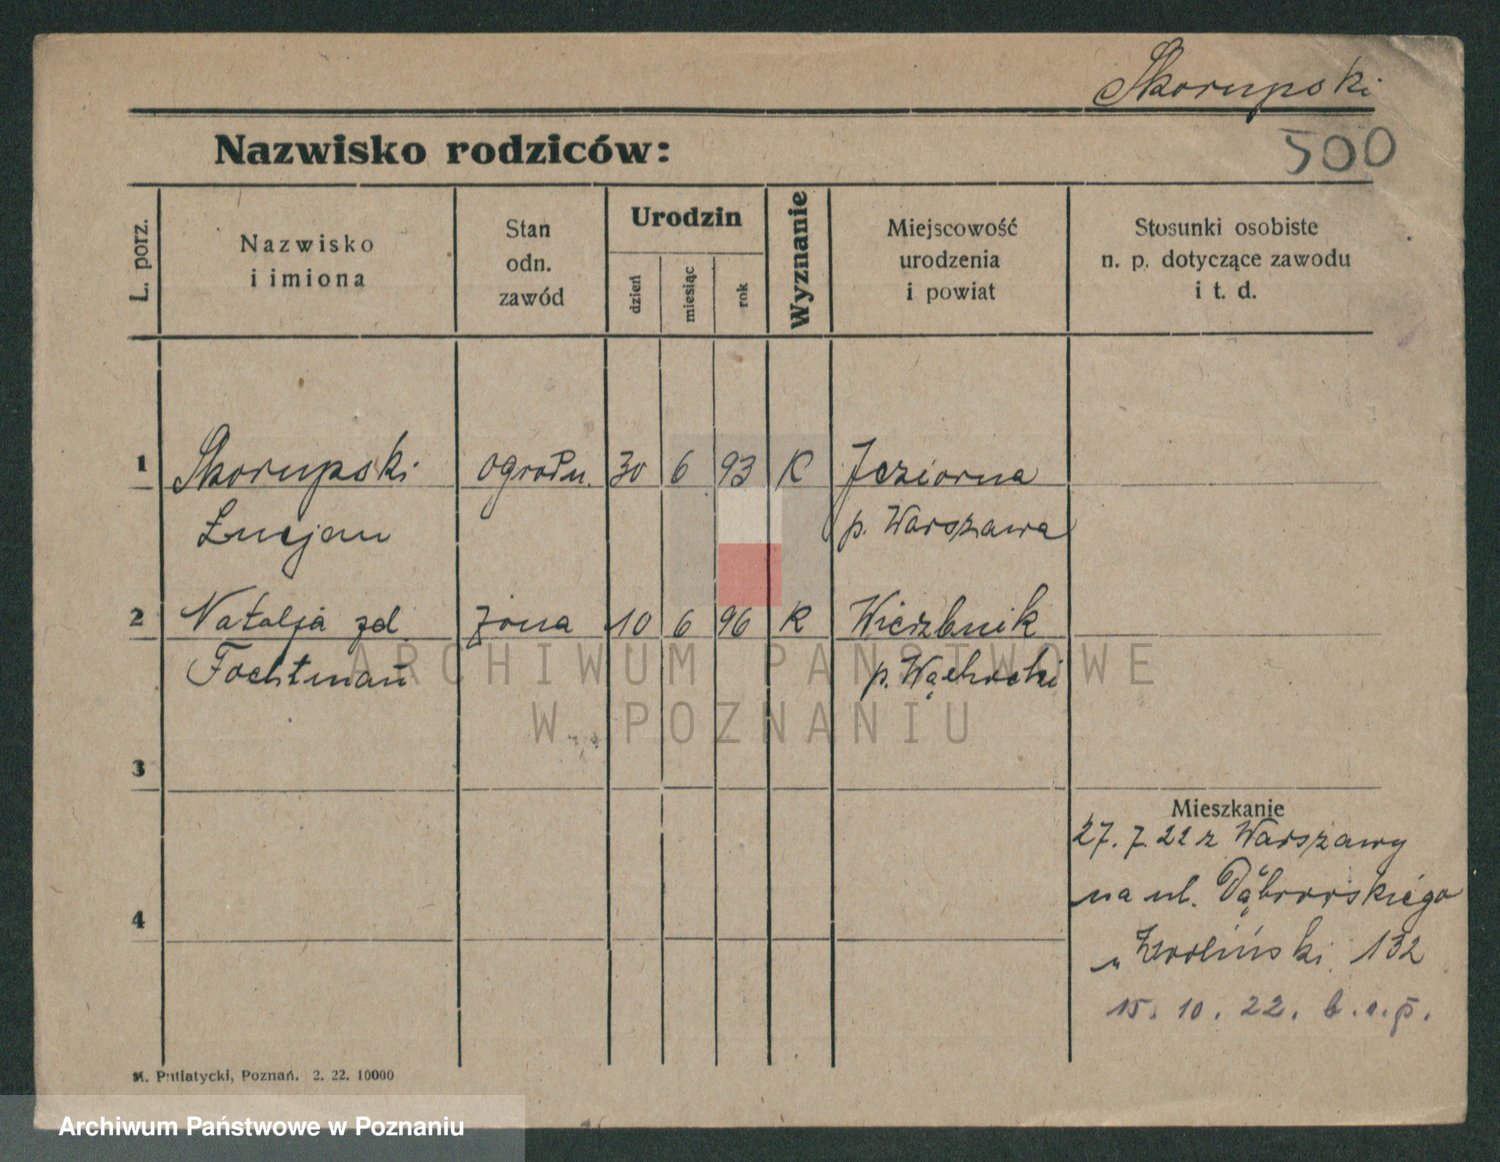 Skorupski
500
Nazwisko rodziców:
L. porz.
Nazwisko
i imiona
Stan
odn.
zawód
Urodzin
dzień
miesiąc
rok
Wyznanie
Miejscowość
urodzenia
i powiat
Stosunki osobiste
n. p. dotyczące zawodu
i t. d.
1 Skorupski ogrodn. 30 6 93 K Jeziorna
Łucjan p. Warszawa
2 Natalja zd. żona 10 6 96 K Wierzbnik
Fochtman p. Wąchocki
3
4
Mieszkanie
27. 7. 22 z Warszawy
na ul. Dąbrowskiego
132
15. 10. 22.
Putiatycki, Poznań. 2. 22. 10000
ARCHIWUM PAŃSTWOWE
W POZNANIU
Archiwum Państwowe w Poznaniu